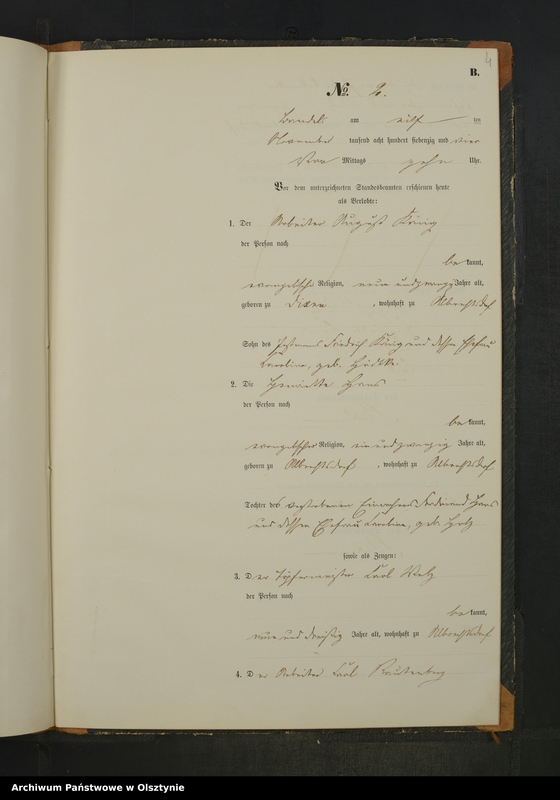 4
B.
No. 2.
am eilf ten
November tausend acht hundert siebenzig und vier
Vor Mittags zehn Uhr.
Vor dem unterzeichneten Standesbeamten erschienen heute
als Verlobte:
1. Der Arbeiter August König
der Person nach
be kannt,
evangelischer Religion, neun und zwanzig Jahre alt,
geboren zu Dixen, wohnhaft zu Albrechtsdorf
Sohn des Friedrich König und dessen Ehefrau
Caroline, geb.
2. Die Henriette Hans
der Person nach
be kannt,
evangelischer Religion, ein und zwanzig Jahre alt,
geboren zu Albrechtsdorf, wohnhaft zu Albrechtsdorf
Tochter des verstorbenen Einwohners Ferdinand Hans
und dessen Ehefrau Caroline, geb.
sowie als Zeugen:
3. Der Töpfermeister Carl
der Person nach
be kannt,
neun und dreißig Jahre alt, wohnhaft zu Albrechtsdorf
4. Der Arbeiter Carl Rautenberg
Archiwum Państwowe w Olsztynie